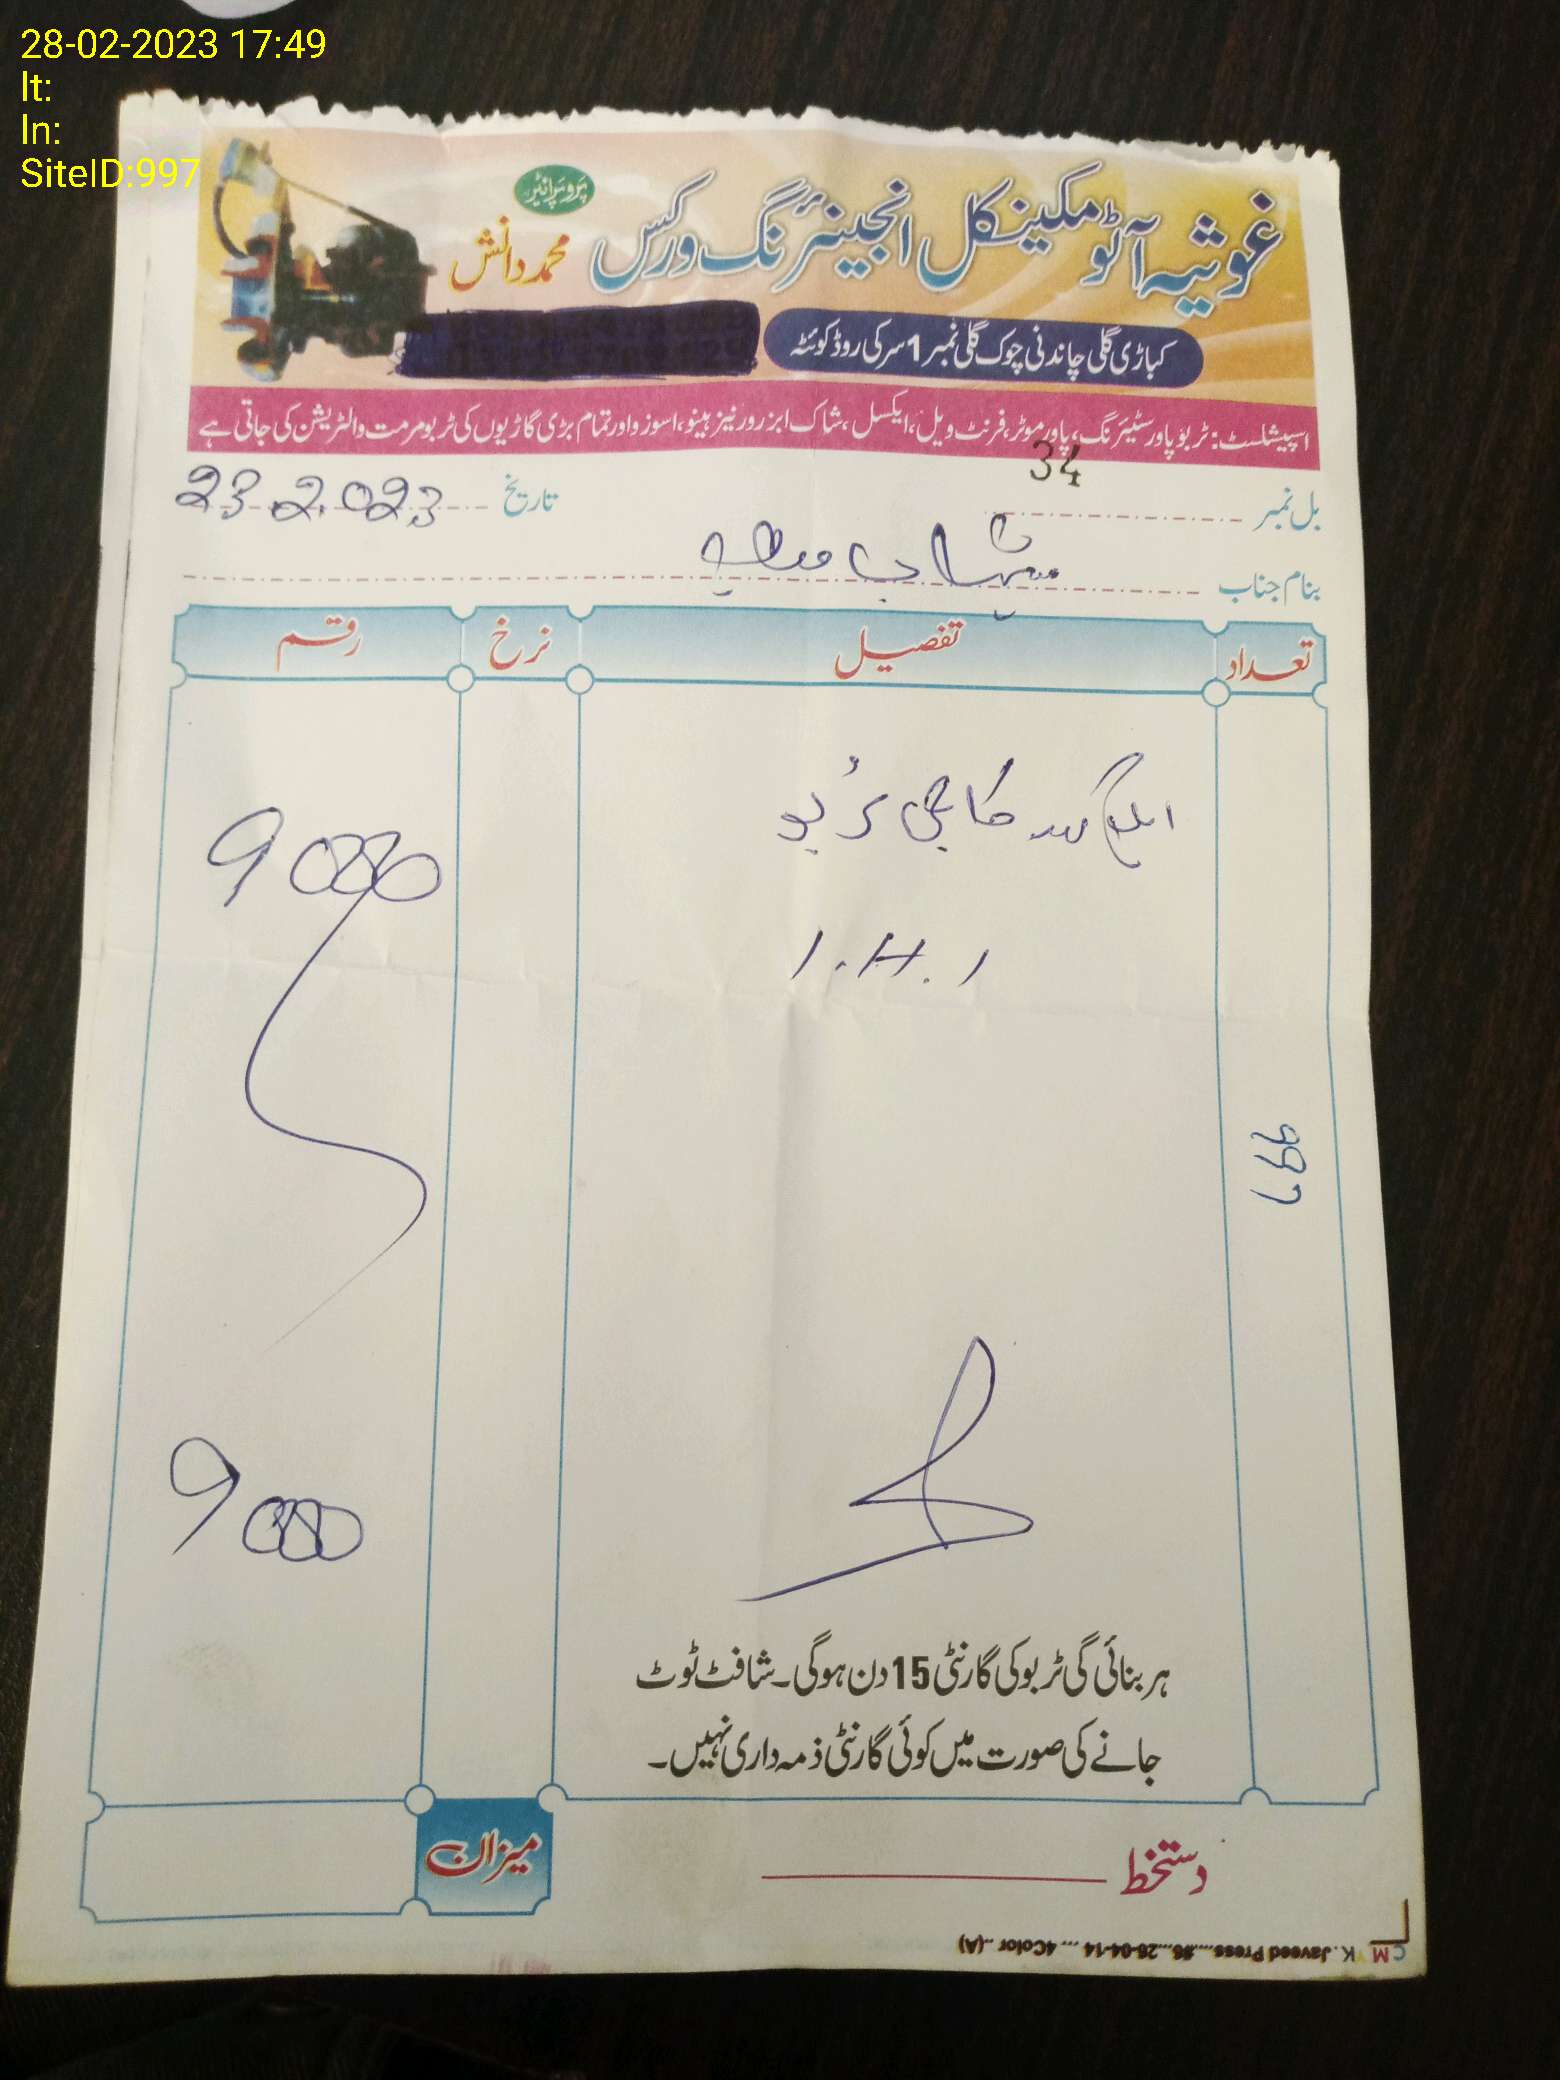 28-02-2023 17:49
lt:
ln:
SiteID:997
پروپرائیٹر
غوثیہ آٹو مکینکل انجینئرنگ ورکس محمد دانش
کباڑی گلی چاندنی چوک گلی نمبر 1 سرکی روڈ کوئٹہ
اسپیشلسٹ: ٹربو پاور سٹیئرنگ، پاور موٹر، فرنٹ ویل، ایکسل، شاک ابزرور نیز ہینو، اسوزو اور تمام بڑی گاڑیوں کی ٹربو مرمت والٹریشن کی جاتی ہے
بل نمبر 34 تاریخ 23.2.023
بنام جناب
تعداد تفصیل نرخ رقم
ٹربو 9000
I.H.I
997
9000
ہر بنائی گی ٹربو کی گارنٹی 15 دن ہوگی۔ شافٹ ٹوٹ
جانے کی صورت میں کوئی گارنٹی ذمہ داری نہیں۔
میزان
دستخط
CMYK. Javeed Press.....86...28-04-14 .... 4Color...(A)